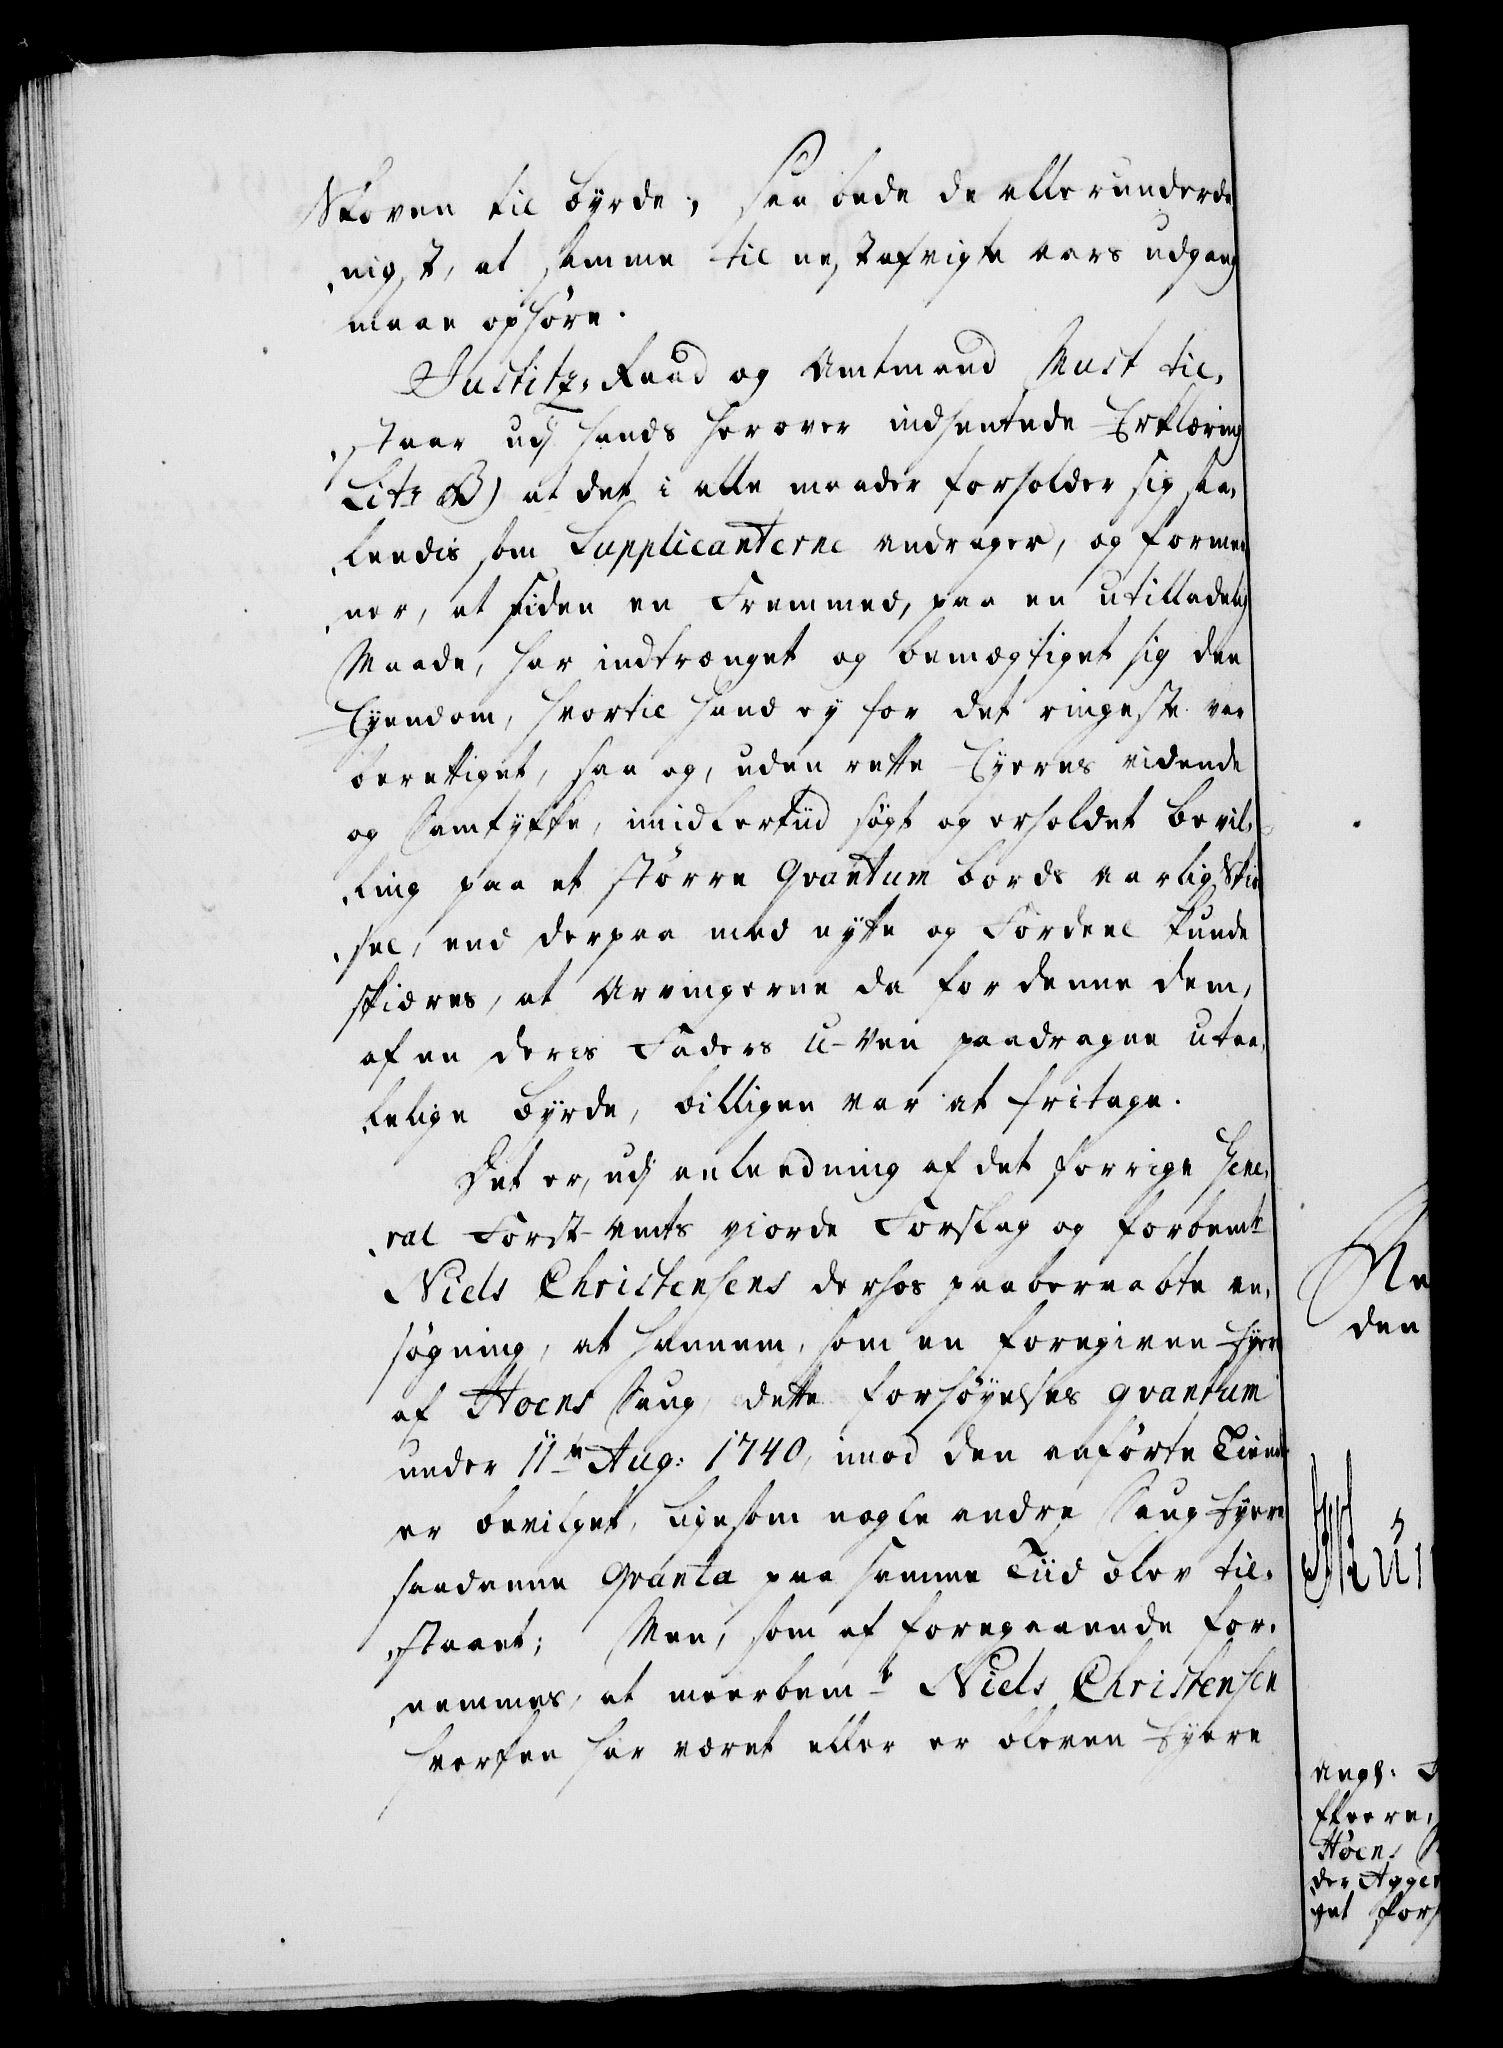 Skoven til byrde, saa bede de allerunderda
nigst, at samme til nestafvigte aars udgang
maae ophøre.
Justitz-Raad og Amtmand Must til-
staar udj hands herover indhentede Erklæring
Litr B) at det i alle maader forholder sig saa-
leedis som Supplicanterne andrager, og formee
ner, at siden en Fremmed, paa en utilladelig
Maade, har indtrænget og bemægtiget sig den
Eyendom, hvortil hand ey for det ringeste var
berettiget, saa og, uden rette Eyeres vidende
og Samtykke, imidlertiid søgt og erholdet bevil-
ling paa et større Qvantum bords aarlig Skir
sel, end derpaa med nytte og Fordeel kunde
skiæres, at Arvingerne da for denne dem,
af en deres Faders U-ven paadragne utaa-
lelige byrde, billigen var at fritage.
Det er, udj anleedning af det forrige Gene-
ral Forst-Amts giorde Forslag og forbemte
Niels Christensens derhos paaberaabte an-
søgning, at hannem, som en foregiven Eyer
af Hoens Saug, dette forhøyelses qvantum
under 11te Aug: 1740, imod den anførte Tiende
er bevilget, ligesom nogle andre Saug Eyere
saadanne Qvanta paa samme Tiid blev til-
staaet; Men, som af foregaaende for-
nemmes, at meerbemte Niels Christensen
hverken har været eller er bleven Eyere
den
Hoens